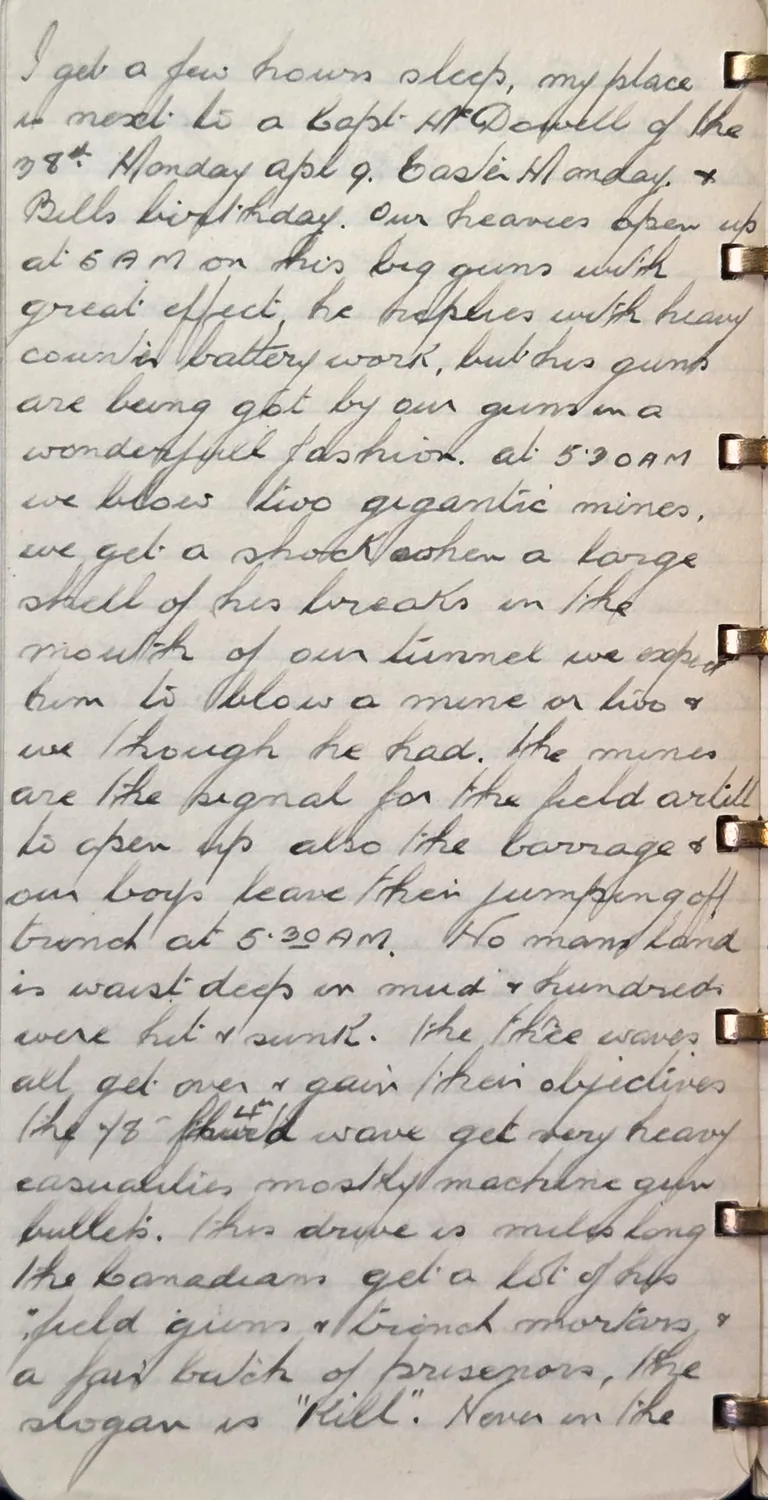 I get a few hours sleep, my place
is next to a Capt McDowell of the
38th Monday apl 9. Easter Monday. &
Bills birthday. Our heavies open up
at 5 AM on his big guns with
great effect, he replies with heavy
counter battery work, but his guns
are being got by our guns in a
wonderfull fashion. at 5.30 AM
we blow two gigantic mines,
we get a shock when a large
shell of his breaks in the
mouth of our tunnel we expect
him to blow a mine or two &
we though he had. The mines
are the signal for the field artill
to open up also the barrage &
our boys leave their jumping off
trench at 5.30 AM. No mans land
is waist deep in mud & hundreds
were hit & sunk. The three waves
all get over & gain their objectives
The 78 4th wave get very heavy
casualities mostly machine gun
bullets. This drive is miles long
The Canadians get a lot of his
field guns & trench mortars &
a fair batch of prisenors, the
slogan is "Kill". Never in the